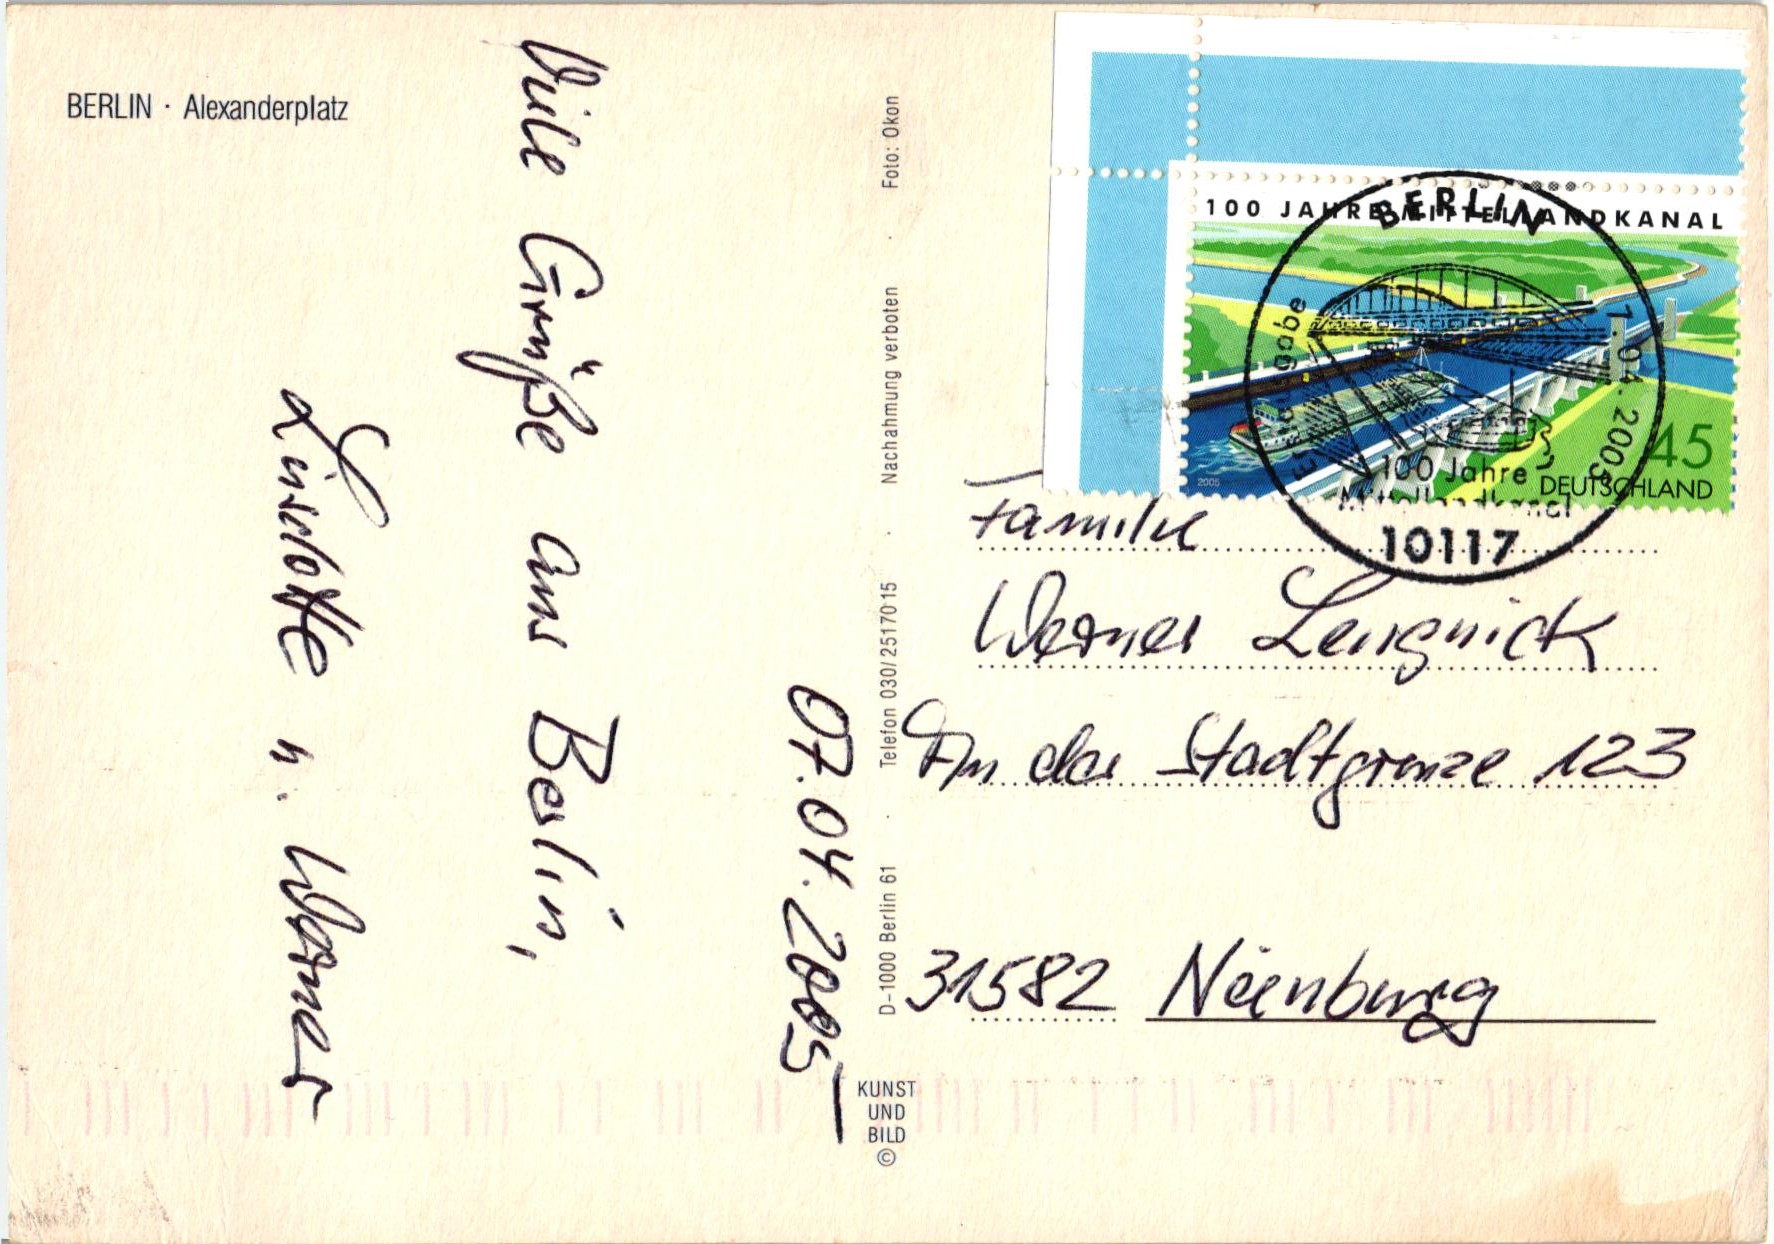 BERLIN · Alexanderplatz
07.04.2005
Viele Grüße aus Berlin,
Liselotte u. Werner
Foto: Okon · Nachahmung verboten · Telefon 030/2517015 · D-1000 Berlin 61
KUNST
UND
BILD
©
100 JAHRE MITTELLANDKANAL
45
DEUTSCHLAND
2005
BERLIN
Erstausgabe
7.04.2005
100 Jahre
Mittellandkanal
10117
Familie
Werner Lengnick
An der Stadtgrenze 123
31582 Nienburg